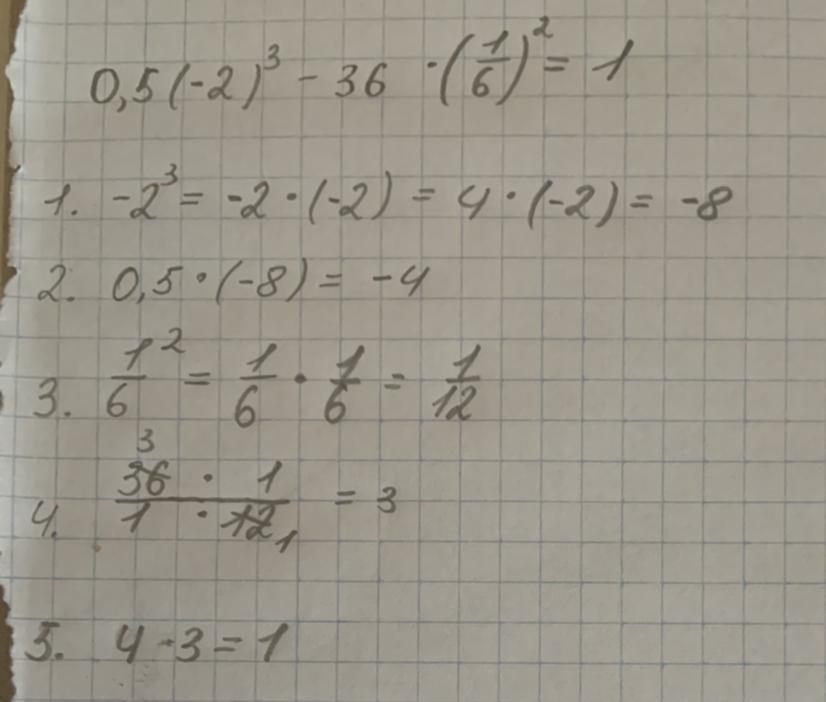 0,5(-2)³ - 36 · (1/6)² = 1
1. -2³ = -2 · (-2) = 4 · (-2) = -8
2. 0,5 · (-8) = -4
3. 1²/6 = 1/6 · 1/6 = 1/12
3
4. 36 · 1 / 1 · 12 1 = 3
5. 4 - 3 = 1